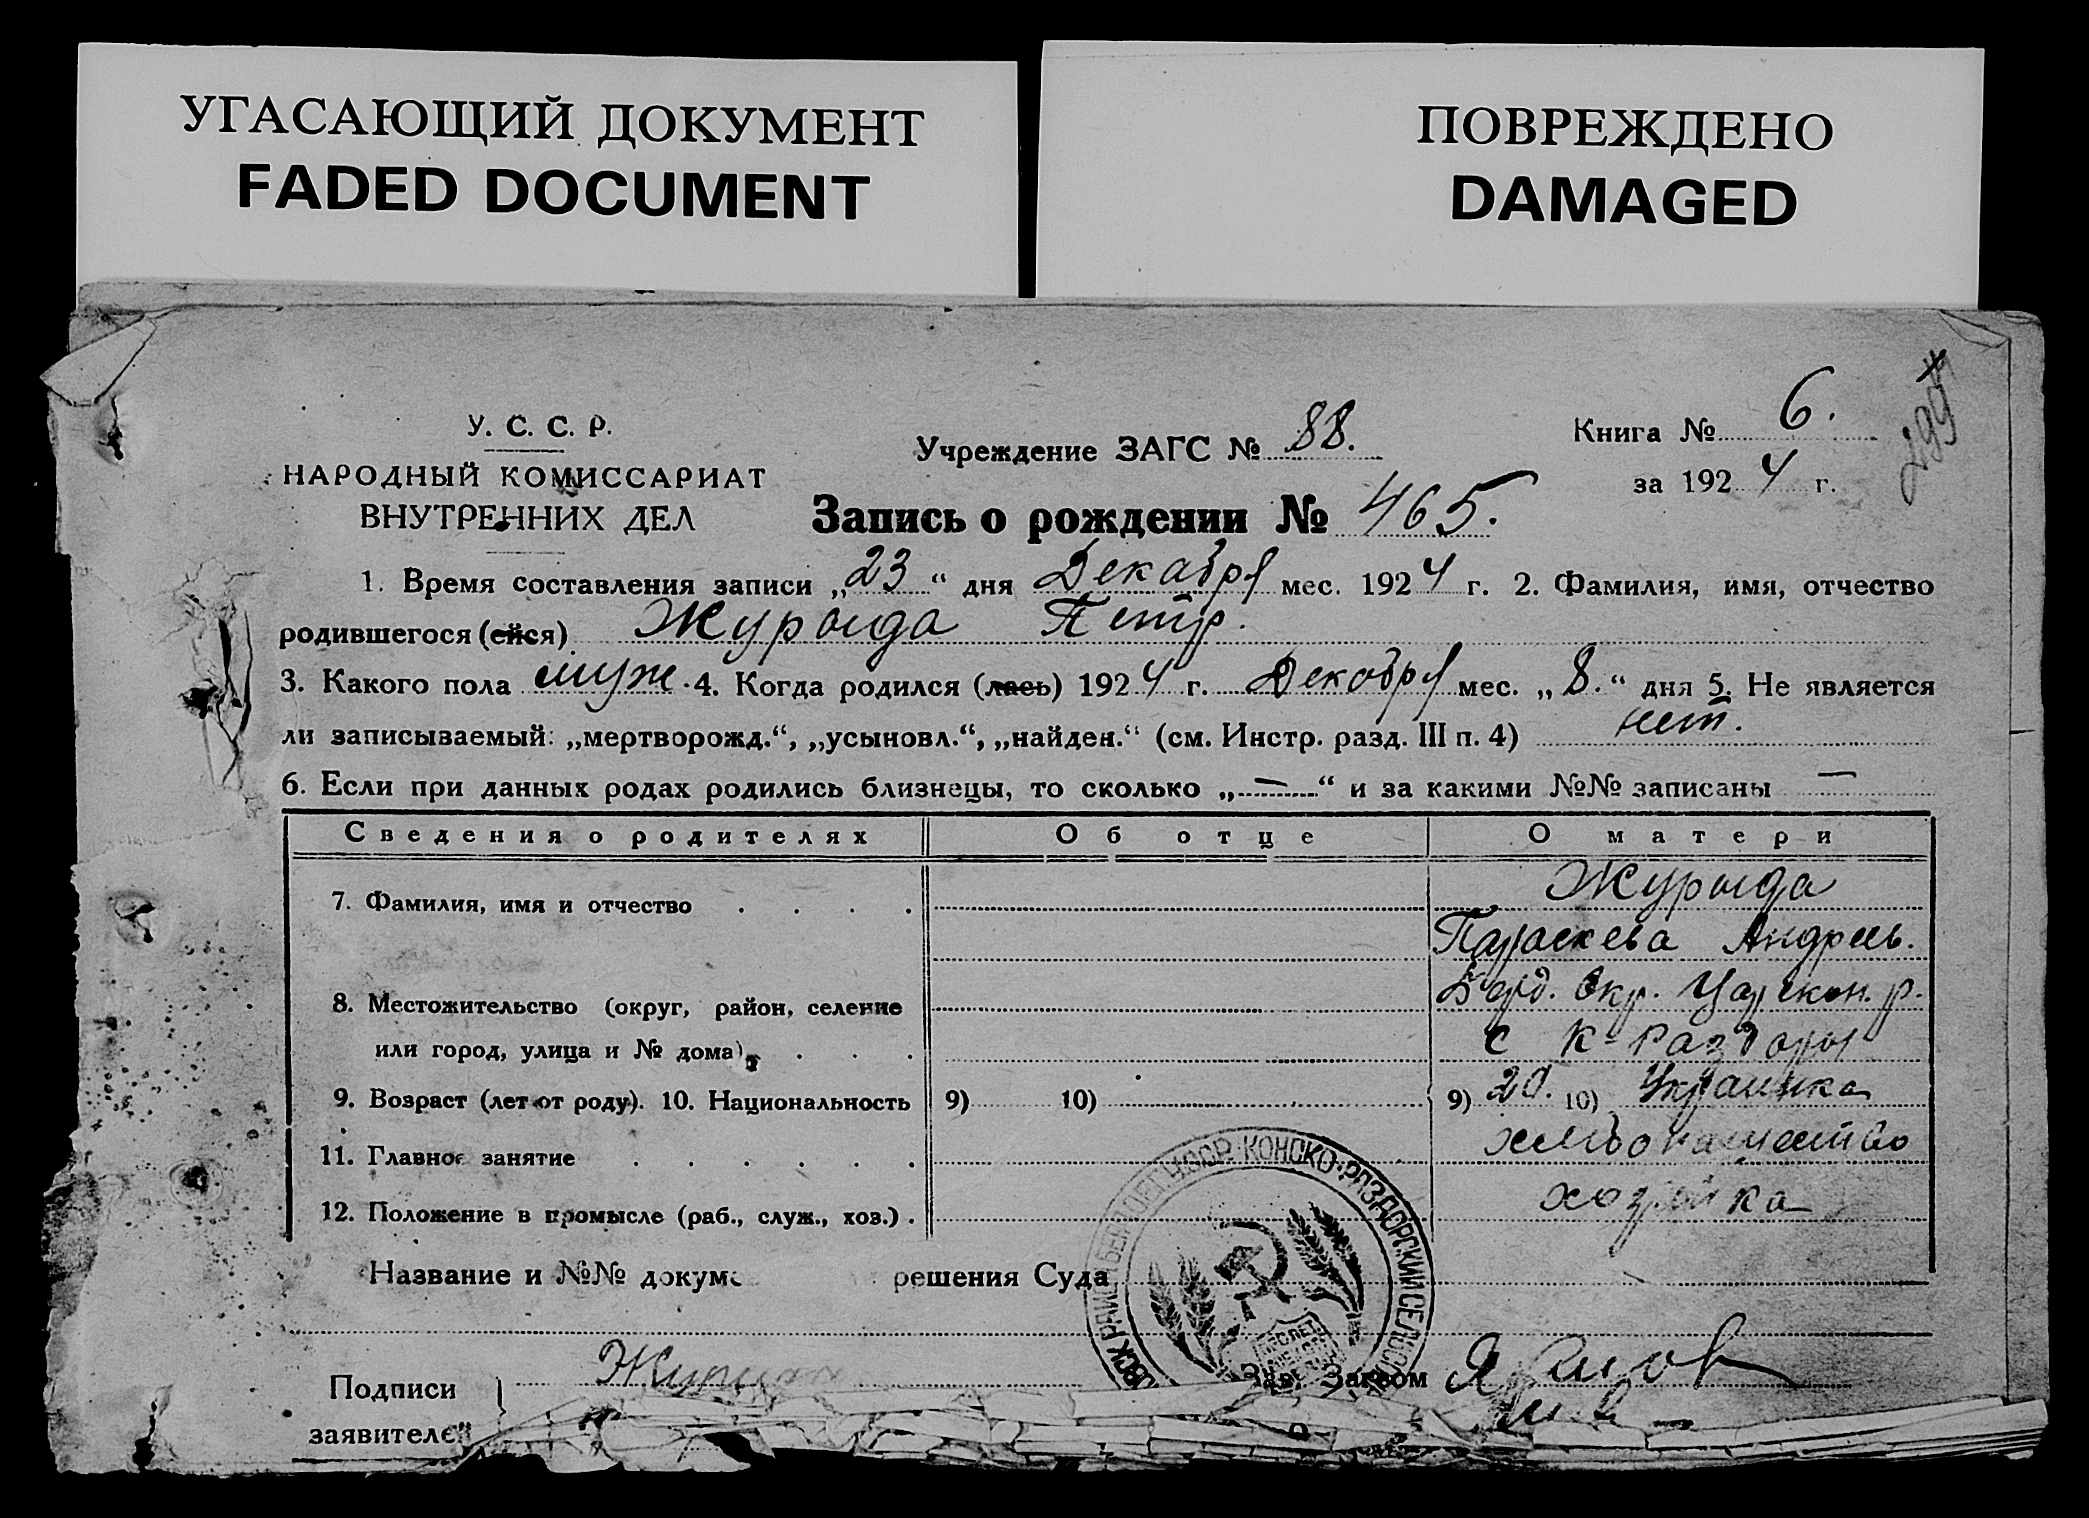 УГАСАЮЩИЙ ДОКУМЕНТ
FADED DOCUMENT
ПОВРЕЖДЕНО
DAMAGED
У. С. С. Р.
НАРОДНЫЙ КОМИССАРИАТ
ВНУТРЕННИХ ДЕЛ
Учреждение ЗАГС № 88.
Книга № 6.
за 1924 г.
Запись о рождении № 465.
1. Время составления записи „23“ дня Декабря мес. 1924 г. 2. Фамилия, имя, отчество
родившегося (ейся) Журыда Петр.
3. Какого пола муж. 4. Когда родился (лась) 1924 г. Декабря мес. „8.“ дня 5. Не является
ли записываемый: „мертворожд.“, „усыновл.“, „найден.“ (см. Инстр. разд. III п. 4) нет.
6. Если при данных родах родились близнецы, то сколько „—“ и за какими №№ записаны —
Сведения о родителях Об отце О матери
7. Фамилия, имя и отчество Журыда
Параскева Андреев.
8. Местожительство (округ, район, селение Берд. Окр. Царекон. р.
или город, улица и № дома) с К-Раздоры
9. Возраст (лет от роду). 10. Национальность 9) 10) 9) 20. 10) Украинка
11. Главное занятие хлебопашество
12. Положение в промысле (раб., служ., хоз.) хозяйка
Название и №№ докум решения Суда
КОНСКО-РАЗДОРСКИЙ СЕЛЬСО
Подписи
Зав. Загсом
заявителей